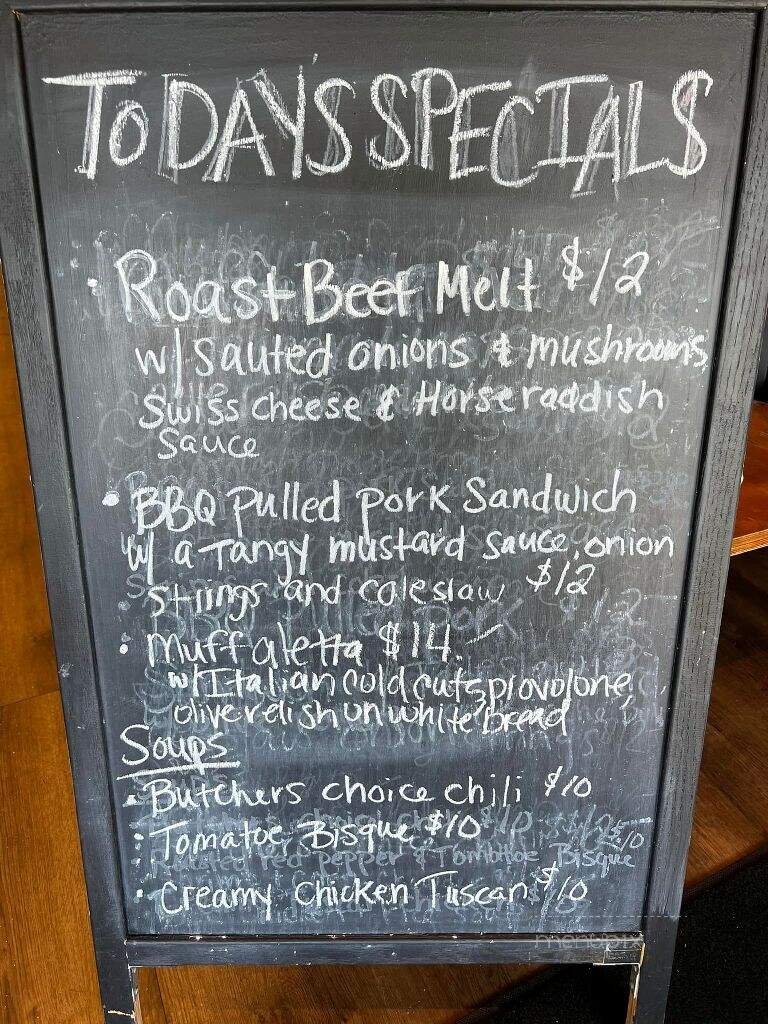 TODAY'S SPECIALS
• Roast Beef Melt $12
w/ Sauted onions & mushrooms,
Swiss cheese & Horseraddish
Sauce
• BBQ Pulled pork Sandwich
w/ a Tangy mustard sauce, onion
strings and coleslaw $12
• Muffaletta $14.
w/ Italian cold cuts, provolone,
olive relish on white bread
Soups
• Butchers choice chili $10
• Tomatoe Bisque $10
Roasted red pepper & Tomatoe Bisque
• Creamy Chicken Tuscan $10